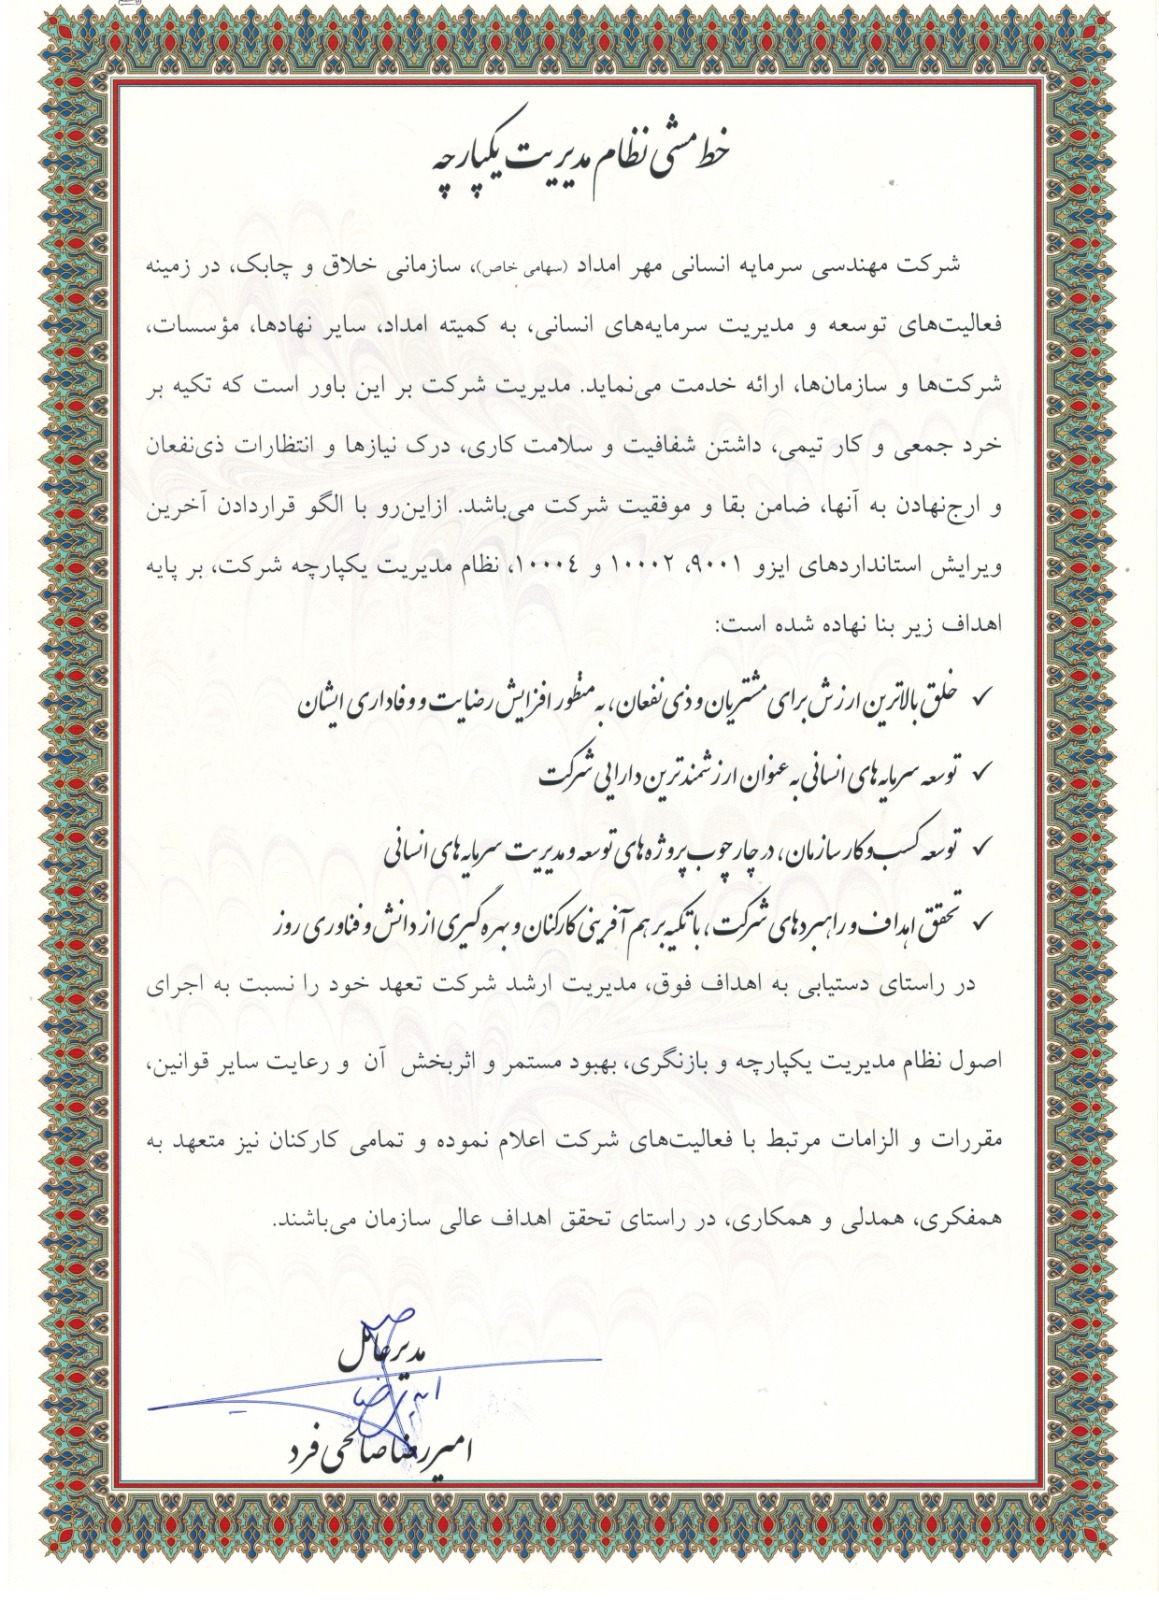 خط مشی نظام مدیریت یکپارچه
شرکت مهندسی سرمایه انسانی مهر امداد (سهامی خاص)، سازمانی خلاق و چابک، در زمینه
فعالیت‌های توسعه و مدیریت سرمایه‌های انسانی، به کمیته امداد، سایر نهادها، مؤسسات،
شرکت‌ها و سازمان‌ها، ارائه خدمت می‌نماید. مدیریت شرکت بر این باور است که تکیه بر
خرد جمعی و کار تیمی، داشتن شفافیت و سلامت کاری، درک نیازها و انتظارات ذی‌نفعان
و ارج‌نهادن به آنها، ضامن بقا و موفقیت شرکت می‌باشد. ازاین‌رو با الگو قراردادن آخرین
ویرایش استانداردهای ایزو ۹۰۰۱، ۱۰۰۰۲ و ۱۰۰۰۴، نظام مدیریت یکپارچه شرکت، بر پایه
اهداف زیر بنا نهاده شده است:
✓ خلق بالاترین ارزش برای مشتریان و ذی نفعان، به منظور افزایش رضایت و وفاداری ایشان
✓ توسعه سرمایه های انسانی به عنوان ارزشمندترین دارایی شرکت
✓ توسعه کسب و کار سازمان، در چارچوب پروژه های توسعه و مدیریت سرمایه های انسانی
✓ تحقق اهداف و راهبردهای شرکت، با تکیه بر هم آفرینی کارکنان و بهره گیری از دانش و فناوری روز
در راستای دستیابی به اهداف فوق، مدیریت ارشد شرکت تعهد خود را نسبت به اجرای
اصول نظام مدیریت یکپارچه و بازنگری، بهبود مستمر و اثربخش آن و رعایت سایر قوانین،
مقررات و الزامات مرتبط با فعالیت‌های شرکت اعلام نموده و تمامی کارکنان نیز متعهد به
همفکری، همدلی و همکاری، در راستای تحقق اهداف عالی سازمان می‌باشند.
مدیرعامل
امیررضا صالحی فرد